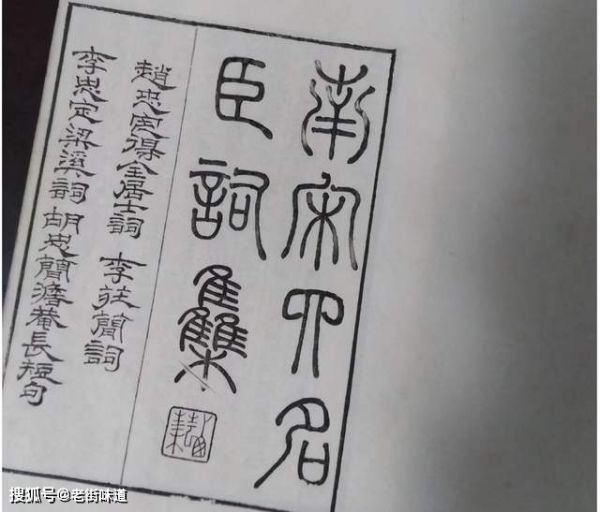 南宋四名
臣詞集
趙忠定得全居士詞 李莊簡詞
李忠定梁溪詞 胡忠簡澹菴長短句
搜狐号@老街味道